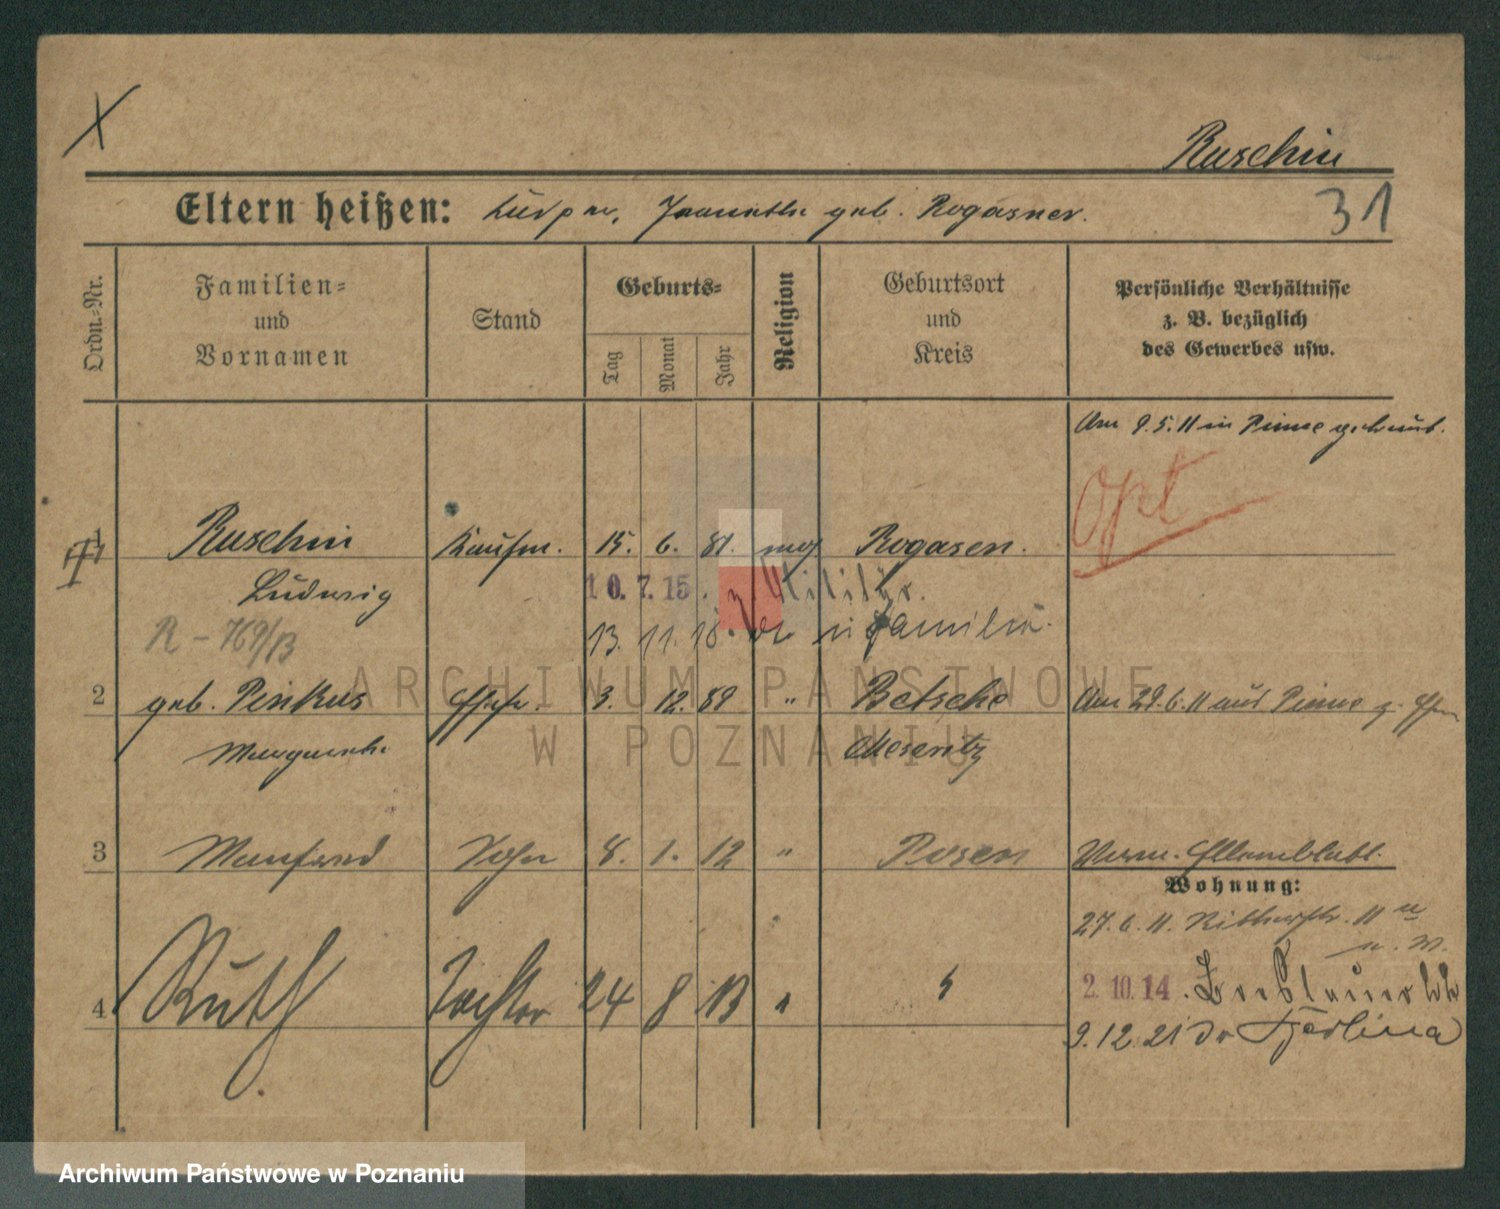 Ruschin
31
Eltern heißen: geb. Rogasner.
Ordn.-Nr.
Familien- und Vornamen
Stand
Geburts-
Tag
Monat
Jahr
Religion
Geburtsort und Kreis
Persönliche Verhältnisse z. B. bezüglich des Gewerbes usw.
Am 9.5.11 in Pinne getraut.
Opt
1 Ruschin Kaufm. 15. 6. 81. mos Rogasen.
Ludwig 10.7.15. z. Militär.
R - 769/13 13. 11. 18. Familie.
2 geb. Pinkus Ehefr. 3. 12. 89 " Betsche Am 29.6.11 aus Pinne z. Ehem
Margarethe Meseritz
3 Manfred Sohn 8. 1. 12 " Posen
Wohnung:
27.6.11. Ritterstr. 11
2.10.14.
4 Ruth Tochter 24 8 13 "
9.12.21 do Berlina
ARCHIWUM PAŃSTWOWE
W POZNANIU
Archiwum Państwowe w Poznaniu